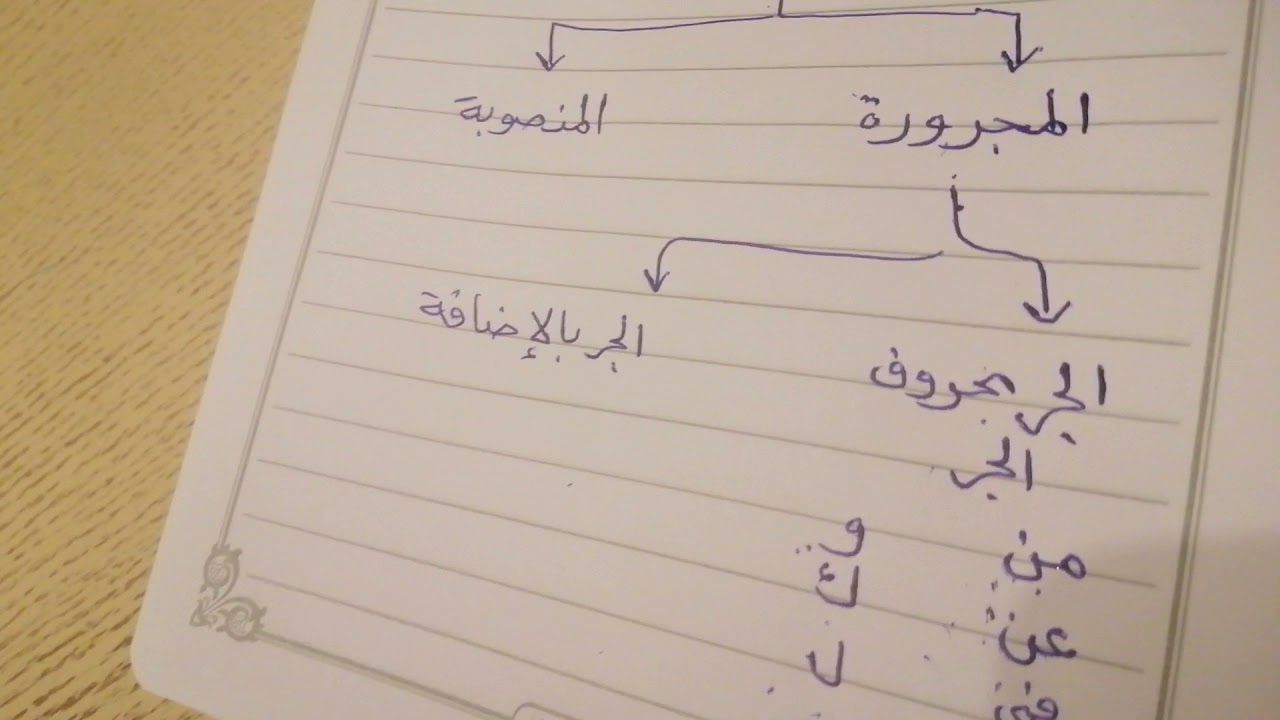 المجرورة المنصوبة
الجر بالإضافة
الجر بحروف
الجر
من في
عن ك
في ل